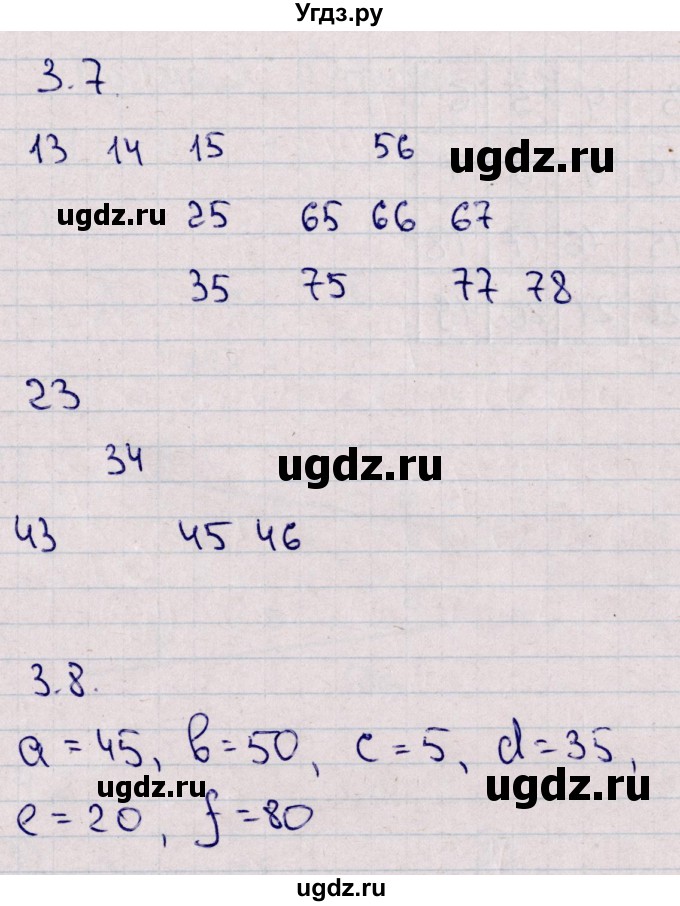 Угдз.ру
3.7.
13 14 15 56 ugdz.ru
ugdz.ru 25 65 66 67
35 75 77 78
23
34 ugdz.ru
43 45 46
3.8.
a = 45, b = 50, c = 5, d = 35,
ugdz.ru ugdz.ru
e = 20, f = 80
ugdz.ru